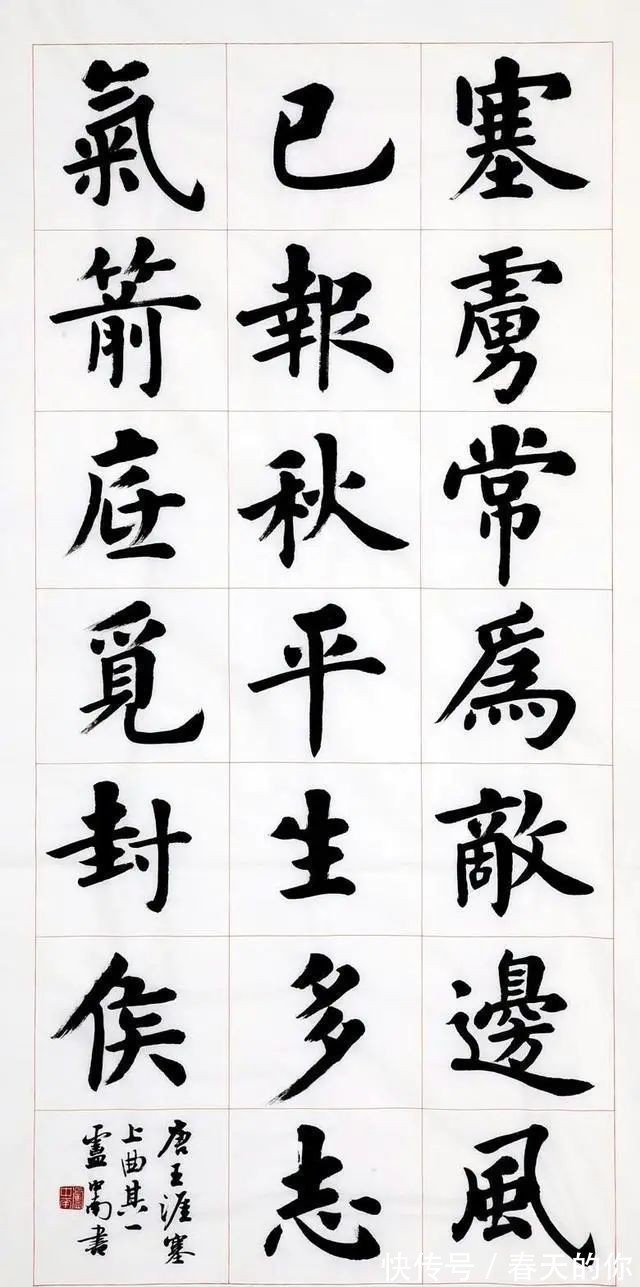 塞虜常爲敵邊風
已報秋平生多志
氣箭底覓封侯
唐王涯塞
上曲其一
盧中南書
快传号/春天的你